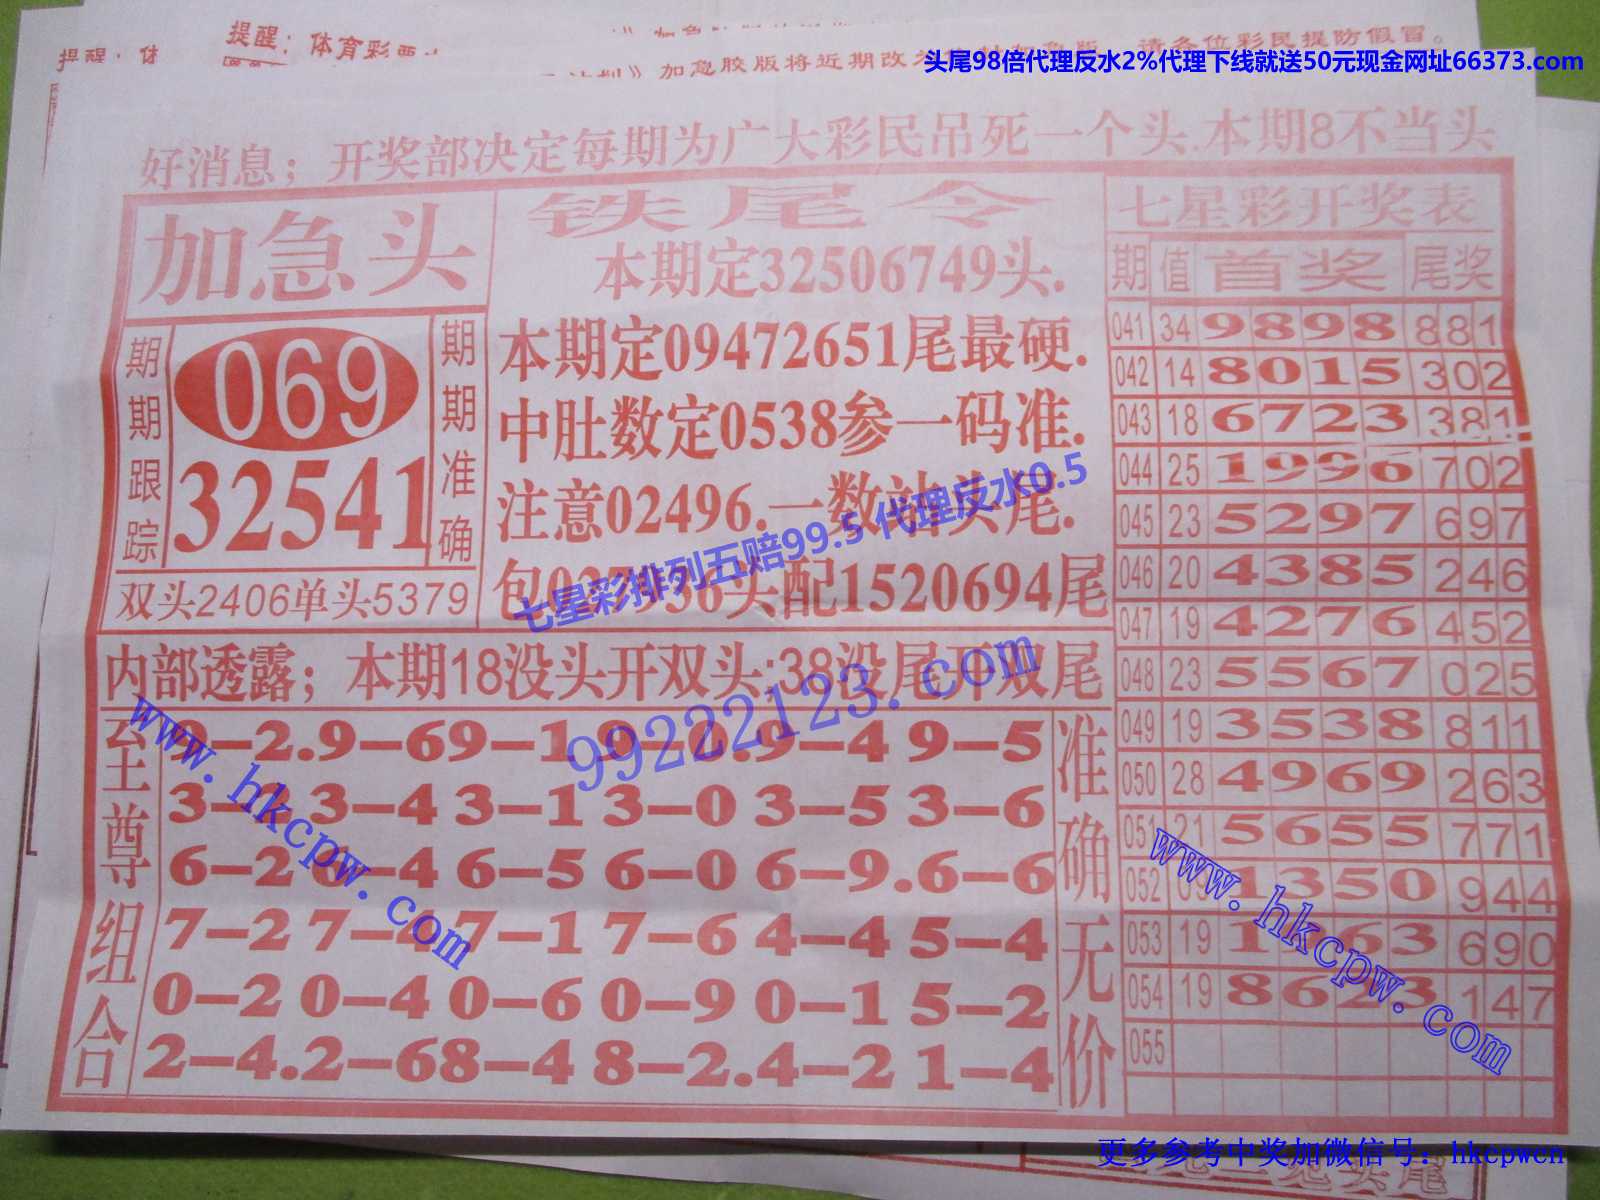 提醒：体育彩票
提醒：体
加急胶版将近期改
请各位彩民提防假冒。
头尾98倍代理反水2%代理下线就送50元现金网址66373.com
好消息；开奖部决定每期为广大彩民吊死一个头.本期8不当头
加急头
期期跟踪
069
32541
期期准确
双头2406单头5379
铁尾令
本期定32506749头.
本期定09472651尾最硬.
中肚数定0538参一码准.
注意02496.一数站头尾.
头配1520694尾
七星彩排列五赔99.5 代理反水0.5
内部透露；本期18没头开双头;38没尾开双尾
99222123.com
至尊组合
9-2.9-6 9-1 9-0.9-4 9-5
3-1 3-4 3-1 3-0 3-5 3-6
6-2 6-4 6-5 6-0 6-9.6-6
7-2 7-4 7-1 7-6 4-4 5-4
0-2 0-4 0-6 0-9 0-1 5-2
2-4.2-6 8-4 8-2.4-2 1-4
准确无价
www.hkcpw.com
七星彩开奖表
期 值 首奖 尾奖
041 34 9898 881
042 14 8015 302
043 18 6723 381
044 25 1996 702
045 23 5297 697
046 20 4385 246
047 19 4276 452
048 23 5567 025
049 19 3538 811
050 28 4969 263
051 21 5655 771
052 09 1350 944
053 19 1 63 690
054 19 8623 147
055
www.hkcpw.com
更多参考中奖加微信号：hkcpwcn